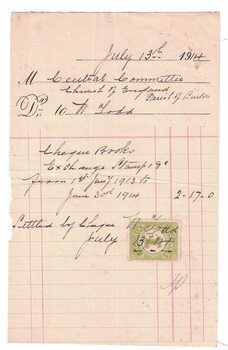 July 13th 1914
M Central Committee
Church of England
Parish of
Dr to W Todd
Cheque Books
Exchange Stamp
from 1st Jany 1913 to
June 30th 1914 2-17-0
Settled by Cheque W Todd
July 13 14